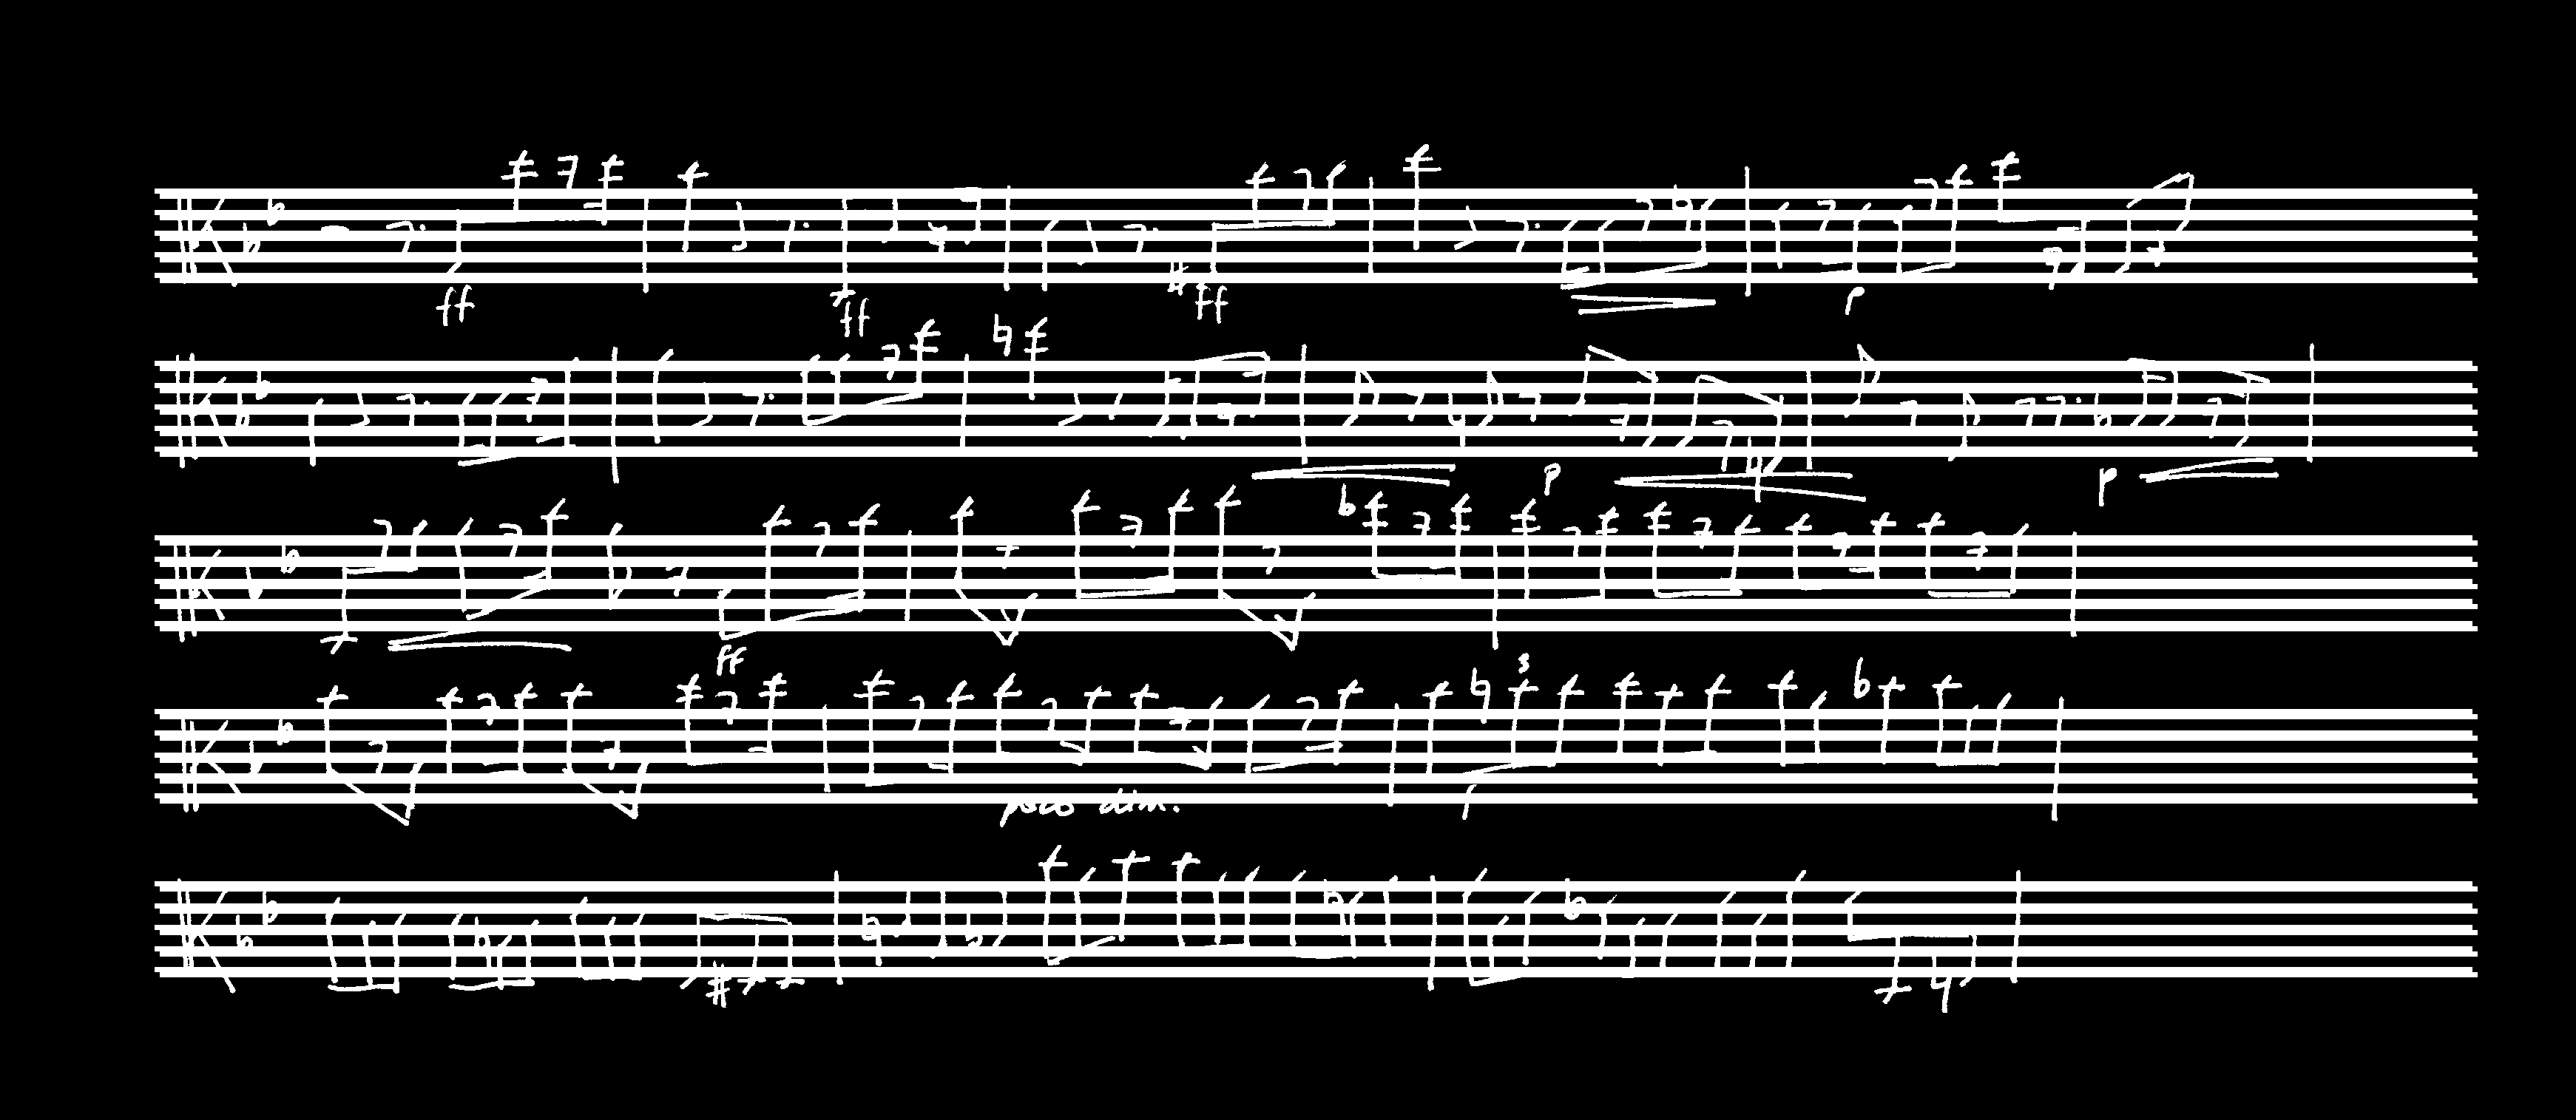 ff ff ff p
p p
ff
3
poco dim.